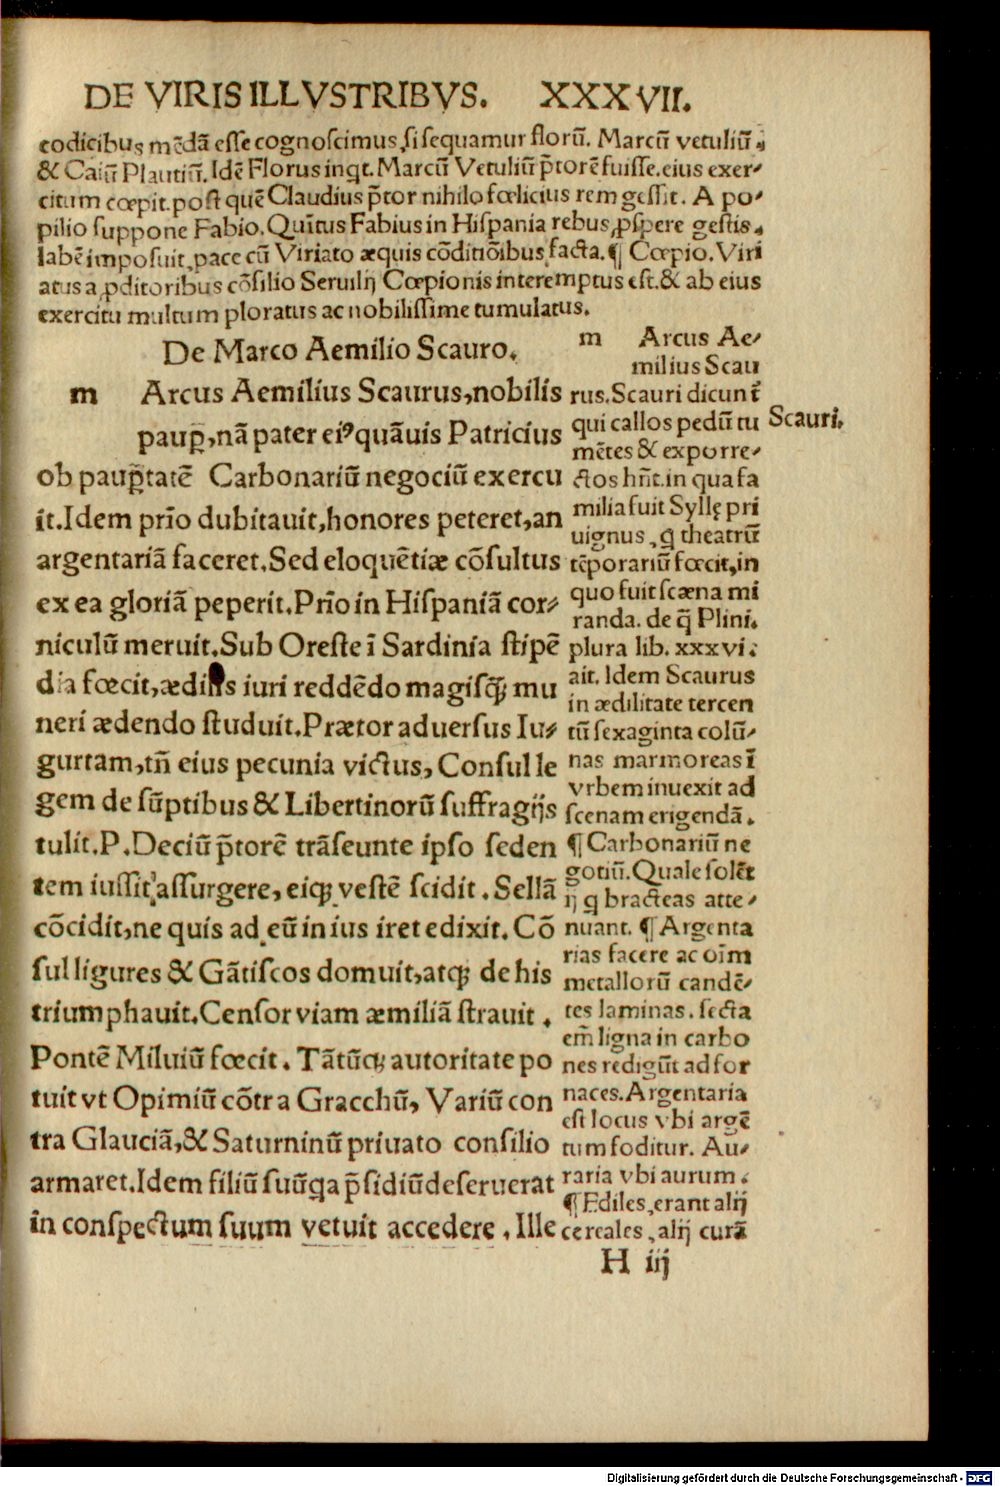 DE VIRIS ILLVSTRIBVS. XXXVII.
codicibus mẽdã esse cognoscimus, si sequamur florũ. Marcũ vetuliũ,
& Caiũ Plautiũ. Idẽ Florus inqt. Marcũ Vetuliũ p̃torẽ fuisse. eius exer⸗
citum cœpit. post quẽ Claudius p̃tor nihilo fœlicius rem gessit. A po⸗
pilio suppone Fabio. Quĩtus Fabius in Hispania rebus ꝓspere gestis.
labẽ imposuit, pace cũ Viriato æquis cõditiõibus facta. ¶ Cœpio. Viri
atus a ꝓditoribus cõsilio Seruilij Cœpionis interemptus est. & ab eius
exercitu multum ploratus ac nobilissime tumulatus.
De Marco Aemilio Scauro.
m Arcus Aemilius Scaurus, nobilis
paup̲, nã pater eiꝰ quãuis Patricius
ob paup̲tatẽ Carbonariũ negociũ exercu
it. Idem prĩo dubitauit, honores peteret, an
argentariã faceret. Sed eloquẽtiæ cõsultus
ex ea gloriã peperit. Prĩo in Hispaniã cor⸗
niculũ meruit. Sub Oreste ĩ Sardinia stipẽ
dia fœcit, ædilis iuri reddẽdo magisꝗ̃ mu
neri ædendo studuit. Prætor aduersus Iu⸗
gurtam, tñ eius pecunia victus, Consul le
gem de sũptibus & Libertinorũ suffragijs
tulit. P. Deciũ p̃torẽ trãseunte ipso seden
tem iussit assurgere, eiqꝫ vestẽ scidit. Sellã
cõcidit, ne quis ad eũ in ius iret edixit. Cõ
sul ligures & Gãtiscos domuit, atqꝫ de his
triumphauit. Censor viam æmiliã strauit.
Pontẽ Miluiũ fœcit. Tãtũqꝫ autoritate po
tuit vt Opimiũ cõtra Gracchũ, Variũ con
tra Glauciã, & Saturninũ priuato consilio
armaret. Idem filiũ suũ qa p̃sidiũ deseruerat
in conspectum suum vetuit accedere. Ille
m Arcus Ae⸗
milius Scau
rus. Scauri dicunt̃
qui callos pedũ tu
mẽtes & exporre⸗
ctos hñt. in qua fa
milia fuit Syllę pri
uignus, q̃ theatrũ
tẽporariũ fœcit, in
quo fuit scæna mi
randa. de q̃ Plini.
plura lib. xxxvi.
ait. Idem Scaurus
in ædilitate tercen
tũ sexaginta colũ⸗
nas marmoreas ĩ
vrbem inuexit ad
scenam erigendã.
¶ Carbonariũ ne
gotiũ. Quale solẽt
ij q bracteas atte⸗
nuant. ¶ Argenta
rias facere ac oĩm
metallorũ candẽ⸗
tes laminas. secta
em̃ ligna in carbo
nes redigũt ad for
naces. Argentaria
est locus vbi argẽ
tum foditur. Au⸗
raria vbi aurum.
¶ Ediles, erant alij
cereales, alij curã
Scauri.
H iij
Digitalisierung gefördert durch die Deutsche Forschungsgemeinschaft - DFG